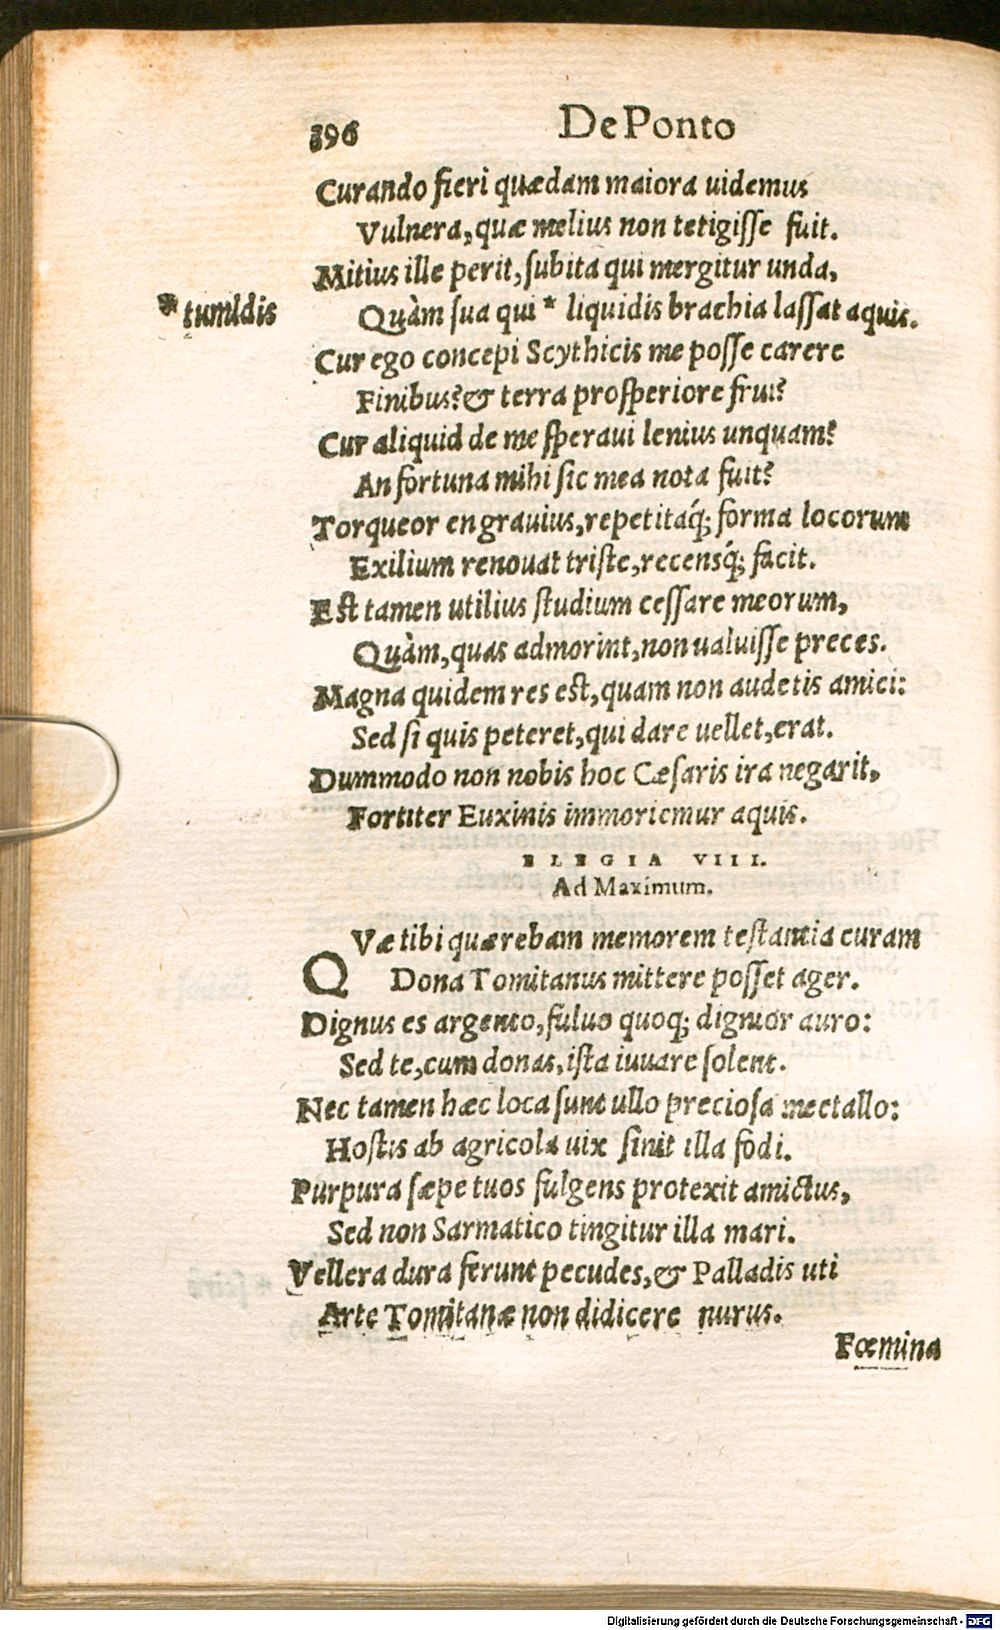 396 De Ponto
Curando fieri quædam maiora uidemus
Vulnera, quæ melius non tetigiſſe fuit.
Mitius ille perit, ſubita qui mergitur unda,
* tumidis
Quàm ſua qui * liquidis brachia laſſat aquis.
Cur ego concepi Scythicis me poſſe carere
Finibus? & terra proſperiore frui?
Cur aliquid de me ſperaui lenius unquam?
An fortuna mihi ſic mea nota fuit?
Torqueor en grauius, repetitaq́; forma locorum
Exilium renouat triſte, recensq́; facit.
Eſt tamen utilius ſtudium ceſſare meorum,
Quàm, quas admorint, non ualuiſſe preces.
Magna quidem res eſt, quam non audetis amici:
Sed ſi quis peteret, qui dare uellet, erat.
Dummodo non nobis hoc Cæſaris ira negarit,
Fortiter Euxinis immoriemur aquis.
ELEGIA VIII.
Ad Maximum.
QVæ tibi quærebam memorem teſtantia curam
Dona Tomitanus mittere poſſet ager.
Dignus es argento, fuluo quoq; dignior auro:
Sed te, cum donas, iſta iuuare ſolent.
Nec tamen hæc loca ſunt ullo precioſa mectallo:
Hoſtis ab agricola uix ſinit illa fodi.
Purpura ſæpe tuos fulgens protexit amictus,
Sed non Sarmatico tingitur illa mari.
Vellera dura ferunt pecudes, & Palladis uti
Arte Tomitanæ non didicere nurus.
Fœmina
Digitalisierung gefördert durch die Deutsche Forschungsgemeinschaft - DFG